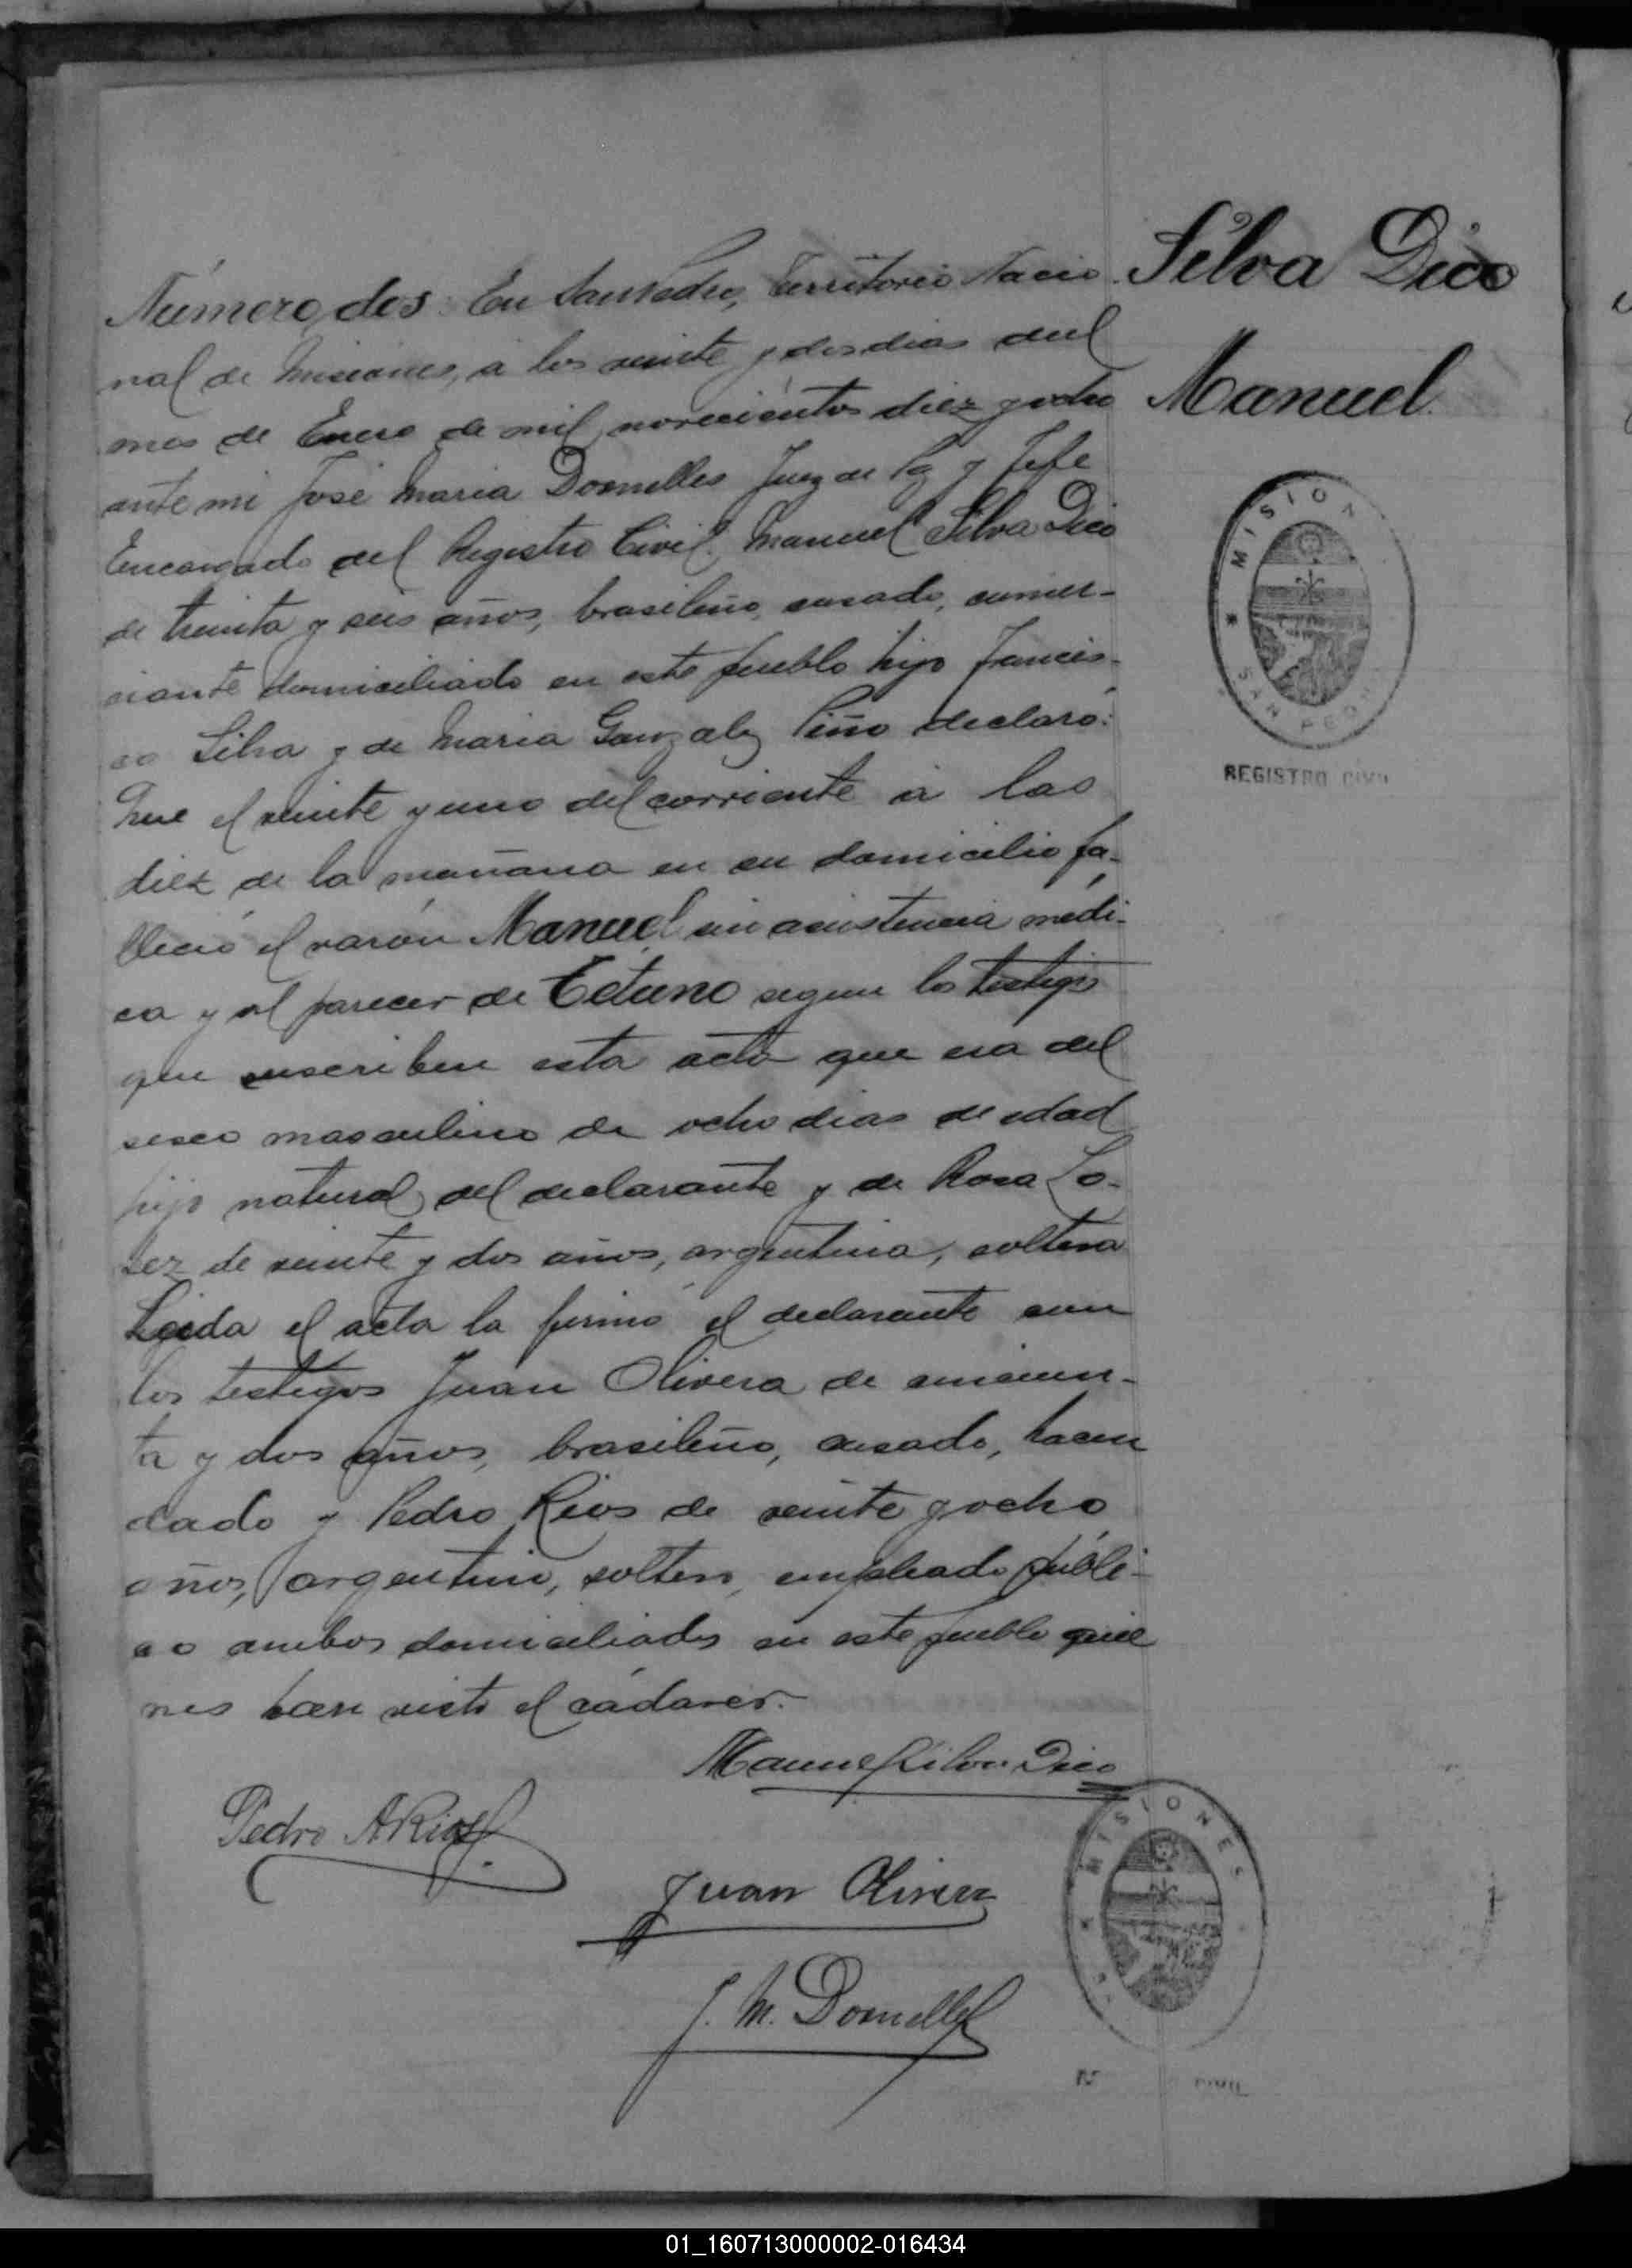 Número dos. En San Pedro, Territorio Nacio
nal de Misiones, á los veinte y dos dias del
mes de Enero de mil novecientos diez y ocho
ante mi José Maria Dornelles Juez de Paz y Jefe
Encargado del Registro Civil. Manuel Silva Dico
de treinta y seis años, brasileño, casado, comer-
ciante domiciliado en este pueblo hijo Francis-
co Silva y de Maria Gonzalez declaró:
Que el veinte y uno del corriente á las
diez de la mañana en su domicilio fa-
lleció el varón Manuel sin asistencia médi-
ca y al parecer de Tétano segun los testigos
que suscriben esta acta que era del
sexo masculino de ocho dias de edad
hijo natural del declarante y de Rosa
de veinte y dos años, argentina, soltera
Leida el acta la firmó el declarante con
los testigos Juan Olivera de cincuen-
ta y dos años, brasileño, casado, hacen
dado y Pedro Rios de veinte y ocho
años, argentino, soltero, empleado públi-
co ambos domiciliados en este pueblo quie
nes han visto el cadáver.
Silva Dico
Manuel
MISION
SAN PEDR
REGISTRO CIVIL
Manuel Silva Dico
Pedro A Rios
Juan Olivera
J. M. Dornelles
MISIONES
CIVIL
01_160713000002-016434